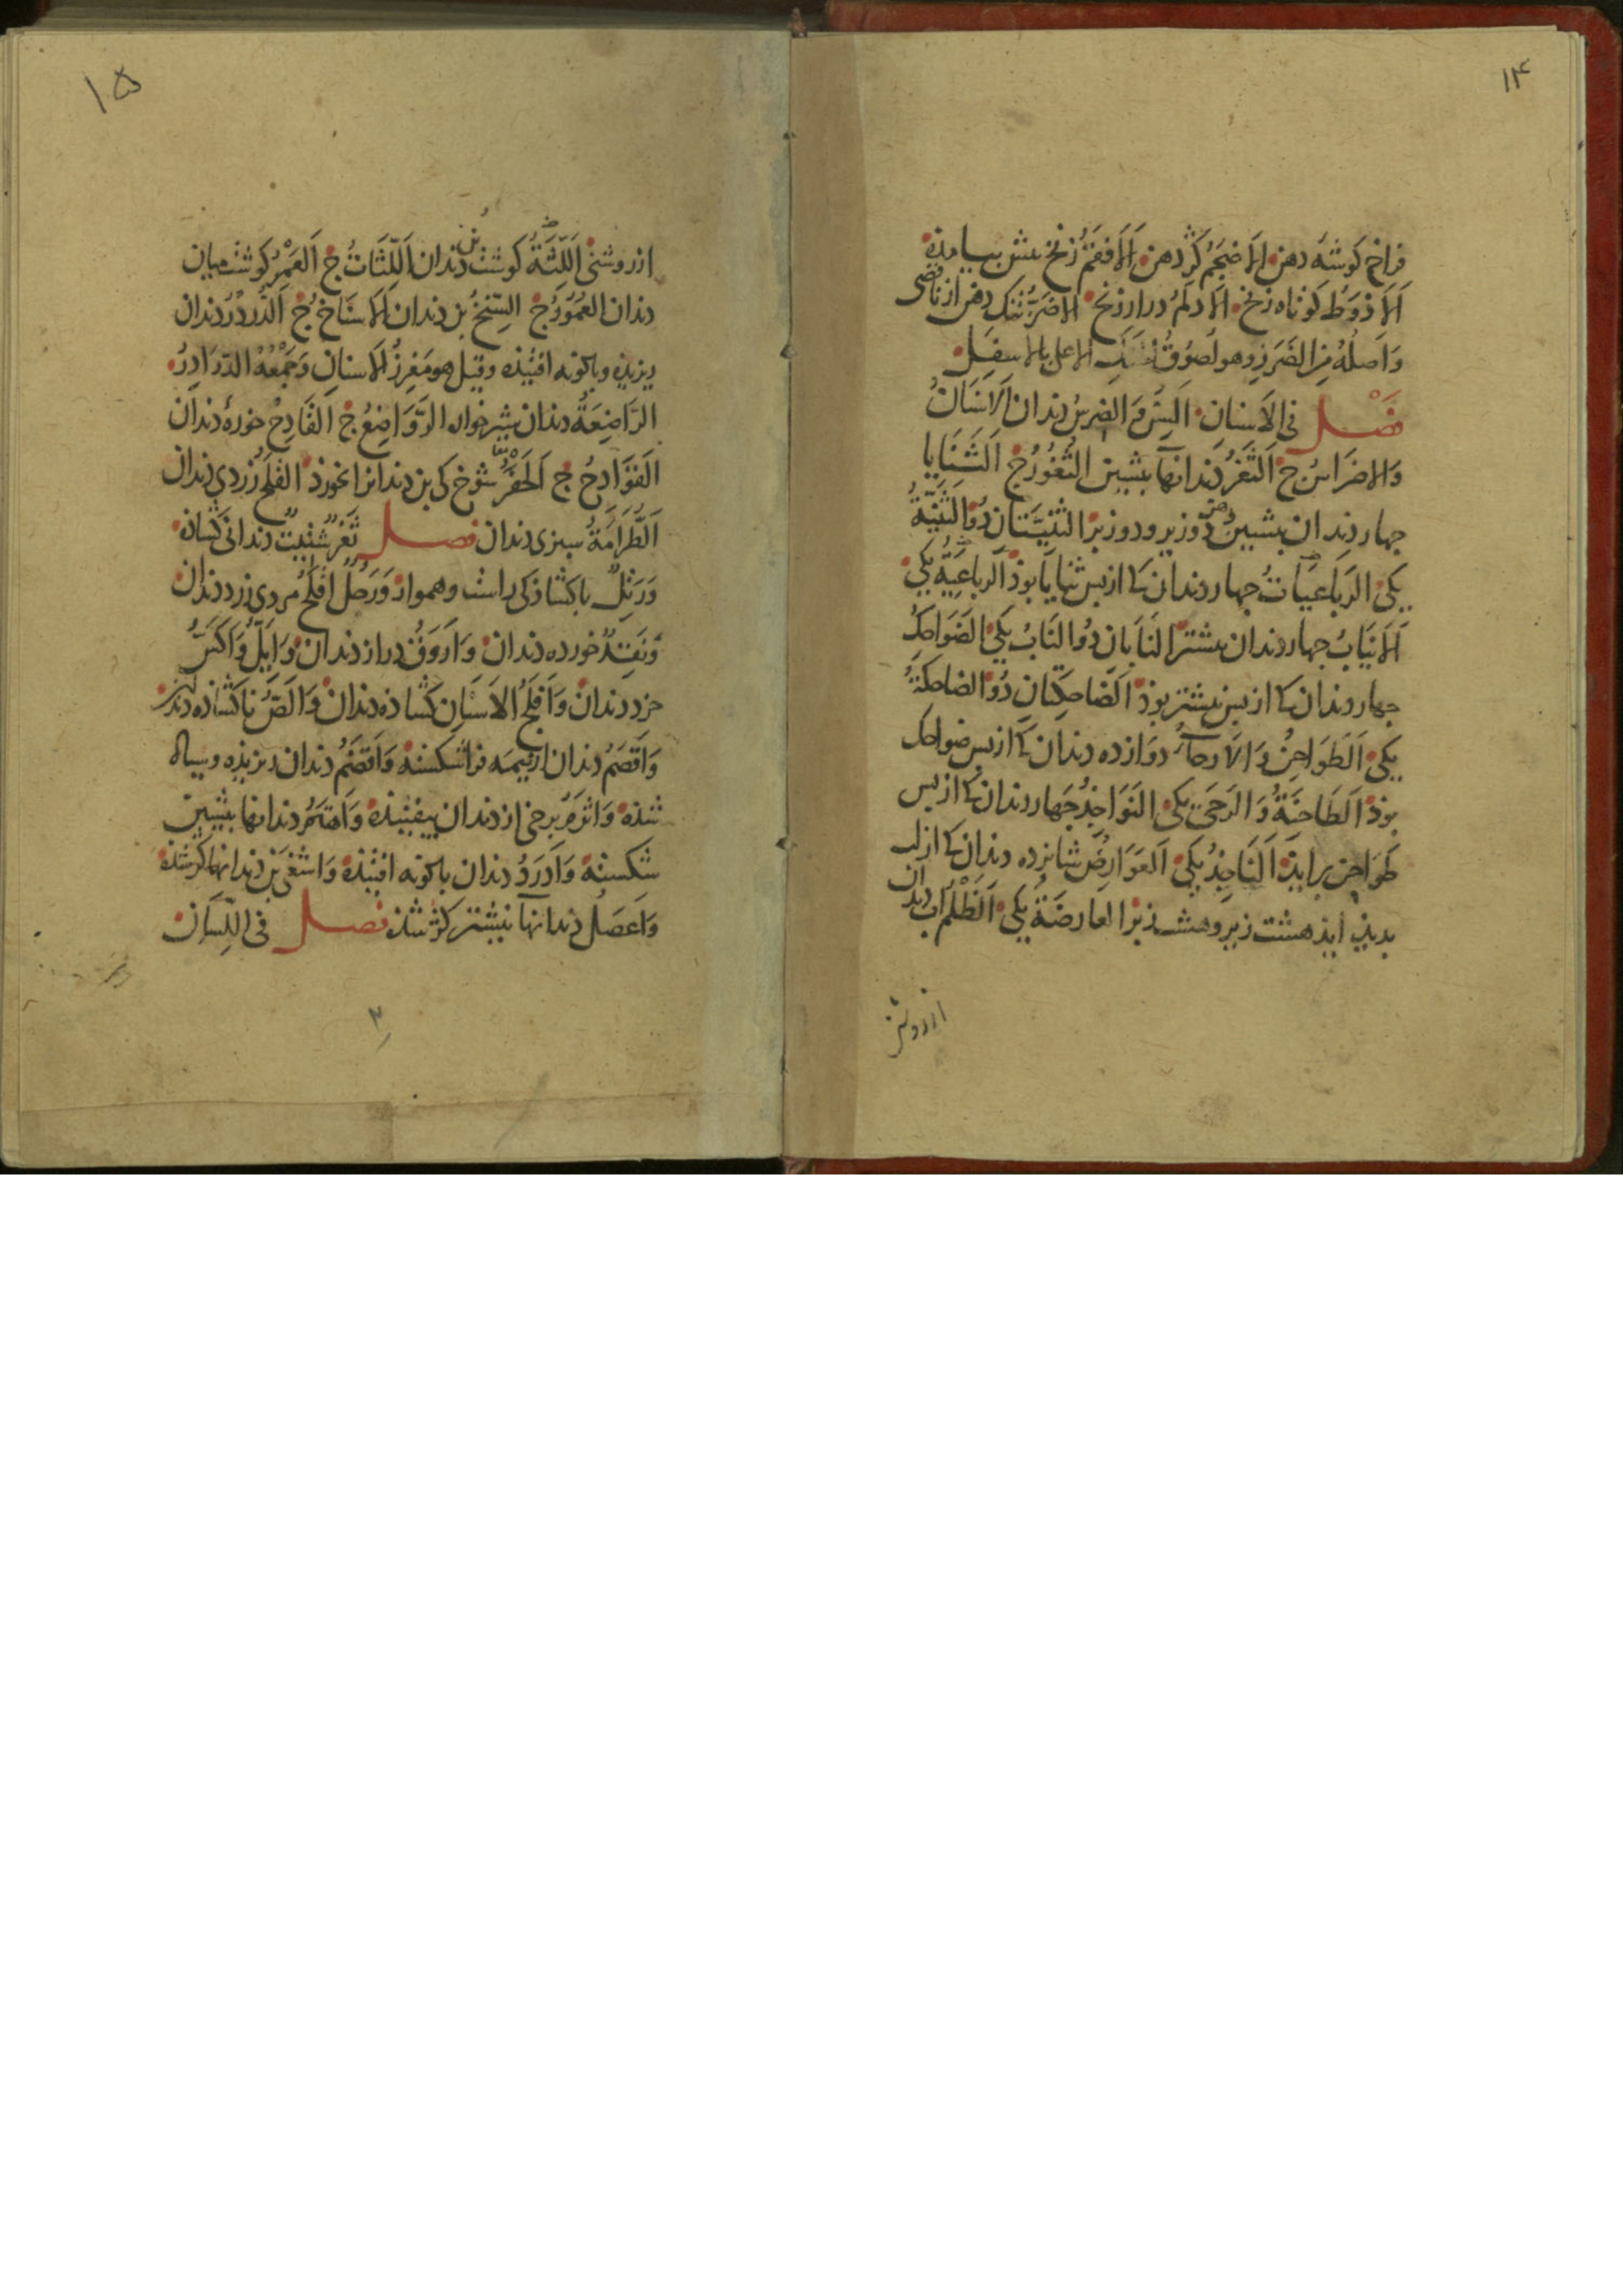 ۱۴
فراخ کوشه دهن اَلاَضجَمُ کژ دهن اَلاَفقَمُ زنخ پیش بیامذه
اَلاَذوَطُ کوتاه زنخ الاَدلَمُ دراز زنخ الاضَزُّ تنک دهن از ناقصی
وَاَصلُهُ مِن الضَّزَزِ وهو لُصُوقُ الحَنَکِ الاعلی بالاسفَلِ
فَصْل فی الاَسنانِ اَلسِنُّ وَالضِرسُ دندان الاَسنَانُ
وَالاضرَاسُ ج اَلثَّغرُ دندانهآ پیشین الثُّغُورُ ج اَلثَّنَایا
جهار دندان پیشین دو زیر و دو زبر الثَنِیَّتَان دُو الثَنِیَّةُ
یکی الرَبَاعِیَاتُ جهار دندان کا از پس ثنایَا بوذ اَلرباعِیَةُ یکی
اَلاَنیَابُ جهار دندان نیشتر النَابَان دُو النَابُ یکی الضَوَاحِکُ
جهار دندان کا از پس نیشتر بوذ اَلضَاحِکَتَانِ دُو الضاحکَةُ
یکی اَلطَوَاحِنُ وَالاَرحآءُ دوازده دندان کا از پس ضواحک
بوذ اَلطَاحِنَةُ وَالرَحَی یکی النَوَاجِذُ جَهار دندان کا از پس
طَوَاحن برایذ اَلنَاجِذُ یکی اَلعَوَارِضُ شانزده دندان کا از لب
بدیذ ایذ هشت زیر و هشت زبر العارضَةُ یکی اَلظَّلْمُ اب دندان
از روشنی
۱۵
از روشنی اَللِّثَةُ کوشت بُن دندان اَللِّثَاتُ ج اَلعَمْرُ کوشت میان
دندان العُمُورُ ج السِّنخُ بن دندان اَلاَسنَاخُ ج اَلدُّردُرُ دندان
ریزیذه وباکونه افتیذه وقیل هو مَغرِزُ اَلاسنانِ وَجَمْعُهُ الدَّرَادِرُ
الرَّاضِعَةُ دندان شیرخواره الرَّوَاضِعُ ج اَلقَادِحُ خورهٔ دندان
اَلقَوَادِحُ ج اَلحَفرُ شوخ کی بن دندانرا بخورذ القَلَحُ زردی دندان
اَلطُّرَامَةُ سبزی دندان فصل ثَغرٌ شَتِیتٌ دندانی کشاذه
وَرَتِلٌ با کشاذکی راست وهموار وَرَجُلٌ اَقلَحُ مردی زرد دندان
وَنَقِدٌ خورده دندان وَاَروَقُ دراز دندان وَاَیَلُّ وَاَکَسُّ
خرد دندان وَاَفلَجُ الاَسنَانِ کشاذه دندان وَاَلَصُّ ناکشاده دندان
وَاَقصَمُ دندان از نیمَه فراشکسته وَاَقضَمُ دندان ریزیذه وسیاه
شذه وَاَثرَمُ برخی از دندان بیفتیذه وَاَهتَمُ دندانها پیشین
شکسته وَاَدرَدُ دندان باکونه افتیذه وَاَشغَی بن دندانها کژ شذه
وَاَعصَلُ دندانهآ نیشتر کژ شذه فصل فی اللِّسَانِ
۲